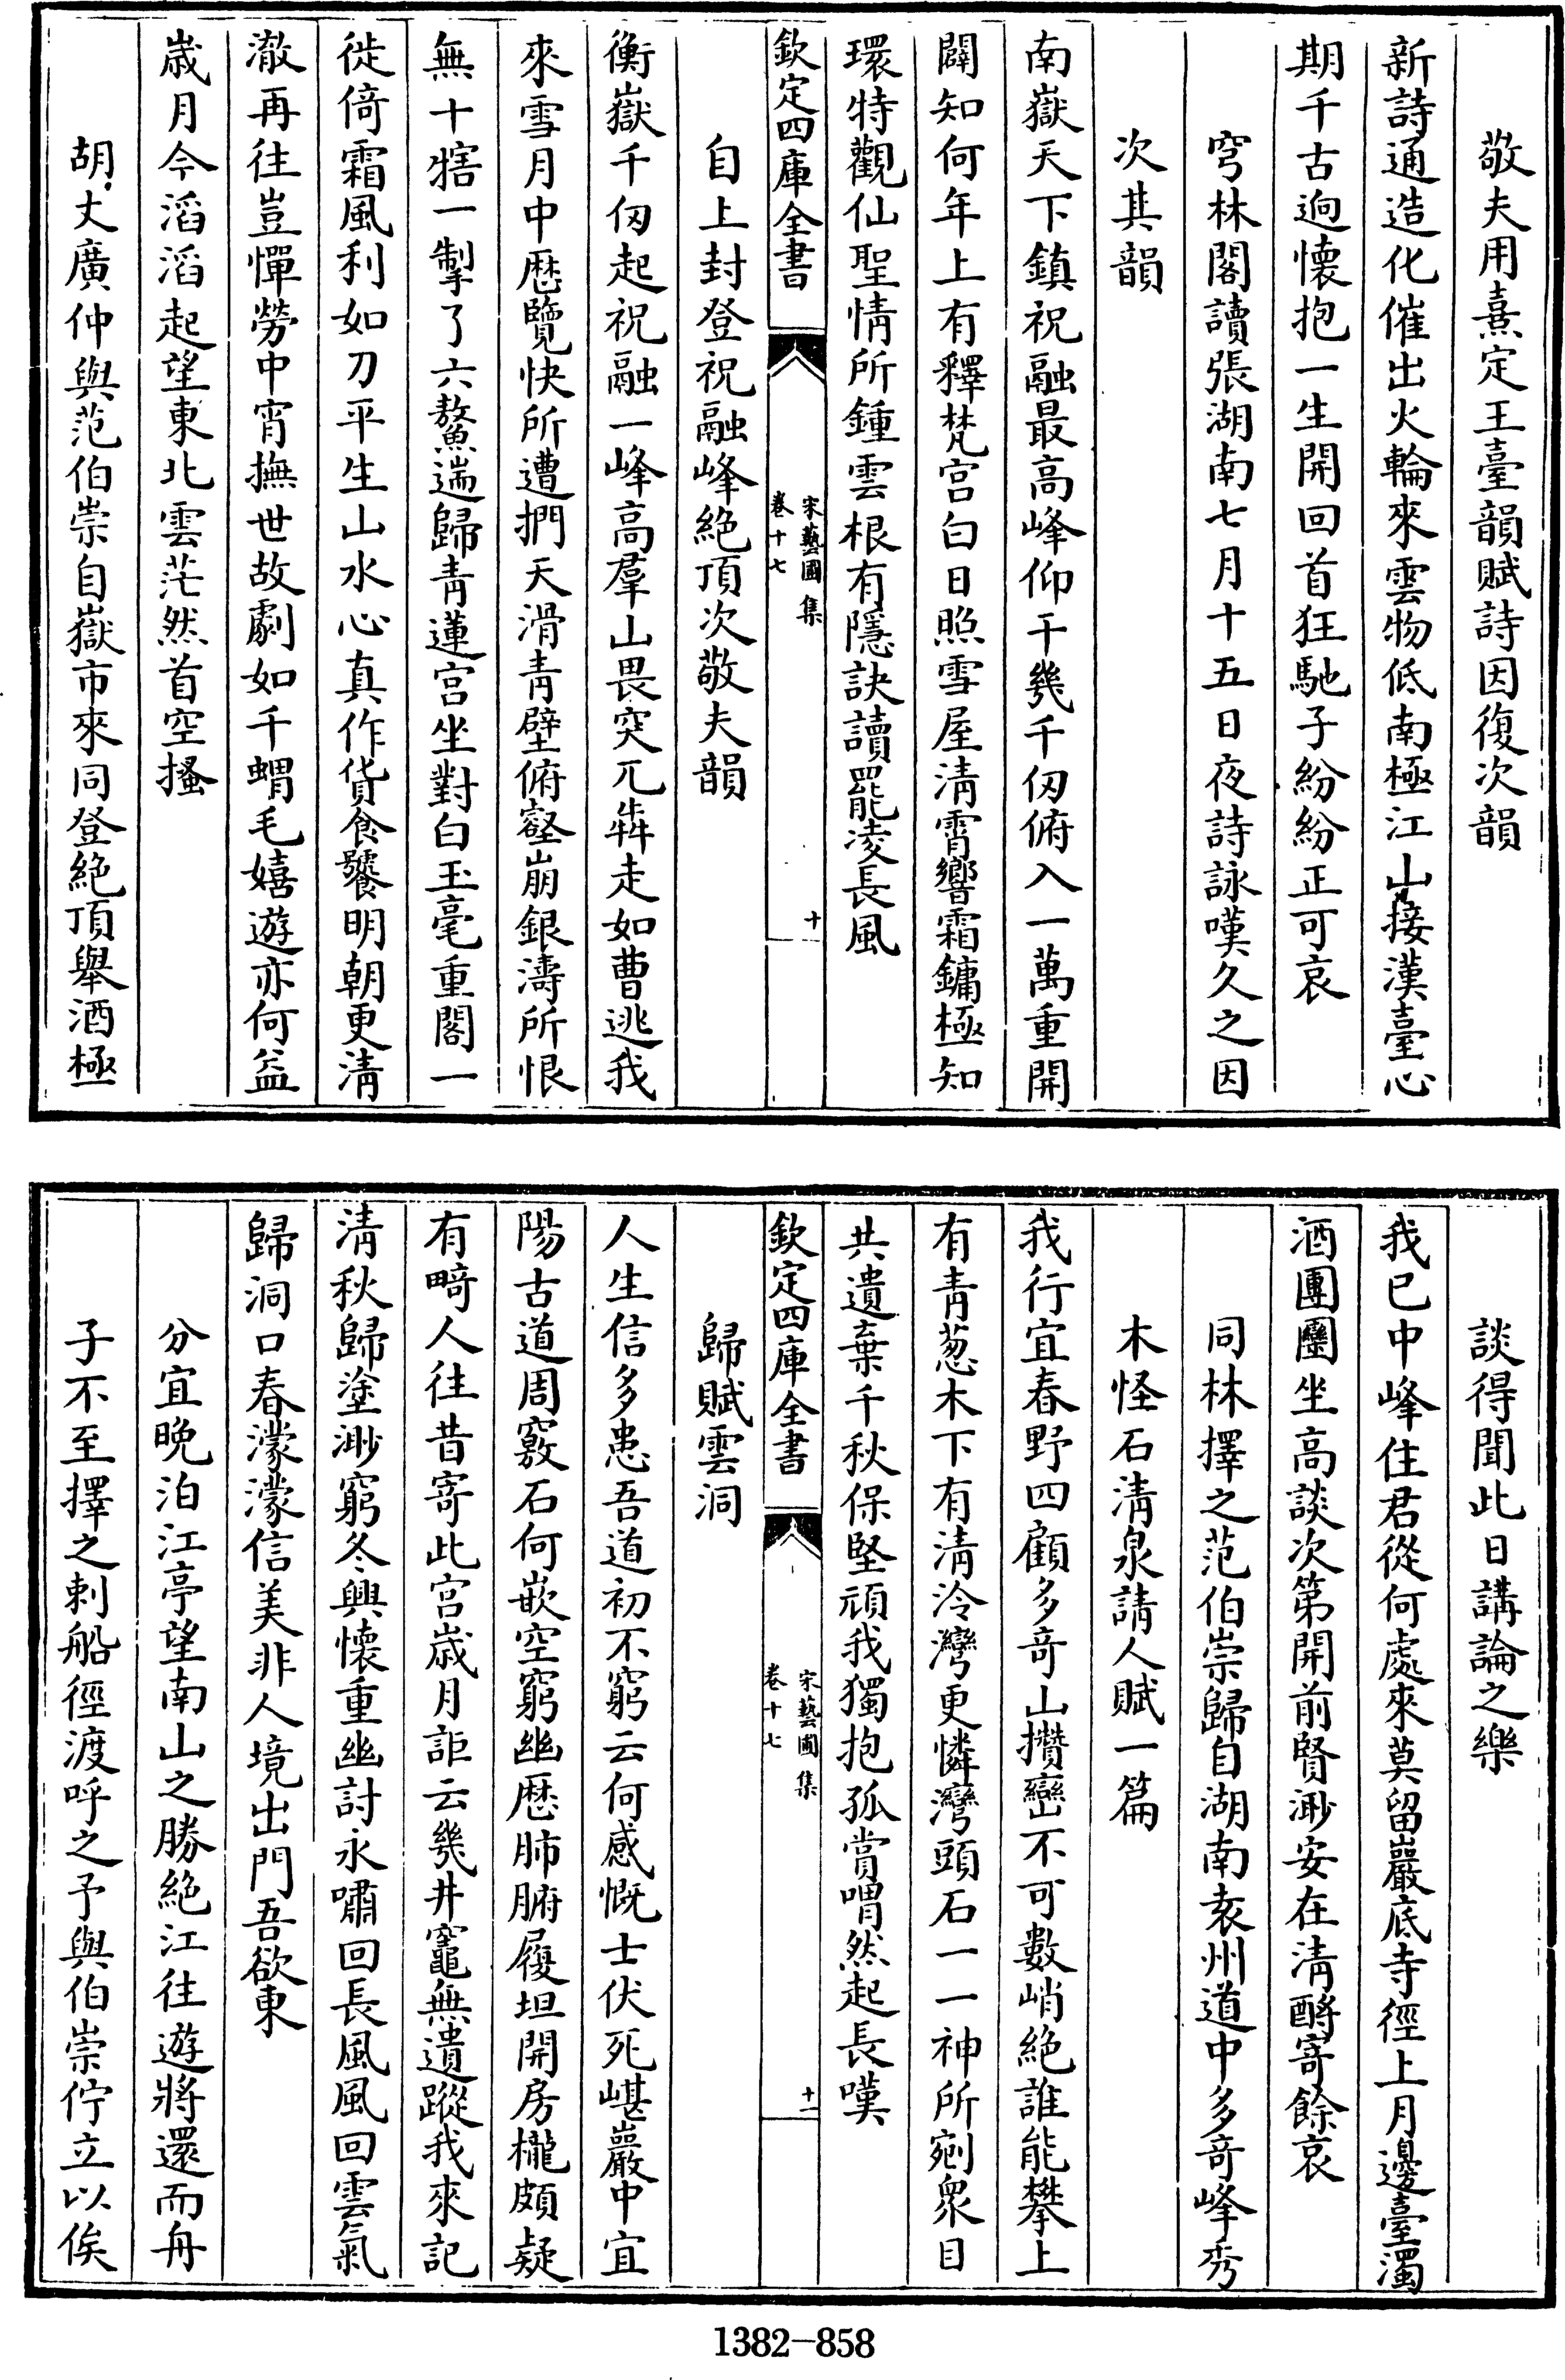 敬夫用熹定王臺韻賦詩因復次韻
新詩通造化催出火輪來雲物低南極江山接漢臺心
期千古迥懷抱一生開回首狂馳子紛紛正可哀
穹林閣讀張湖南七月十五日夜詩詠嘆久之因
次其韻
南嶽天下鎮祝融最高峰仰干幾千仭俯入一萬重開
闢知何年上有釋梵宫白日照雪屋清霄響霜鏞極知
環特觀仙聖情所鍾雲根有隱訣讀罷凌長風
欽定四庫全書
宋藝圃集
卷十七
十
自上封登祝融峰絶頂次敬夫韻
衡嶽千仭起祝融一峰高羣山畏突兀犇走如曹逃我
來雪月中歴覽快所遭捫天滑青壁俯壑崩銀濤所恨
無十犗一掣了六鰲遄歸青蓮宫坐對白玉毫重閣一
徙倚霜風利如刀平生山水心真作貨食饕明朝更清
澈再往豈憚勞中宵撫世故劇如千蝟毛嬉遊亦何益
歳月今滔滔起望東北雲茫然首空搔
胡丈廣仲與范伯崇自嶽市來同登絶頂舉酒極
談得聞此日講論之樂
我已中峰住君從何處來莫留巖底寺徑上月邊臺濁
酒團圞坐高談次第開前賢渺安在清酹寄餘哀
同林擇之范伯崇歸自湖南袁州道中多奇峰秀
木怪石清泉請人賦一篇
我行宜春野四顧多奇山攢巒不可數峭絶誰能攀上
有青葱木下有清泠灣更憐灣頭石一一神所剜衆目
共遺棄千秋保堅頑我獨抱孤賞喟然起長嘆
欽定四庫全書
宋藝圃集
卷十七
十一
歸賦雲洞
人生信多患吾道初不窮云何感慨士伏死嵁巖中宜
陽古道周竅石何嵌空窮幽歴肺腑履坦開房櫳頗疑
有畸人往昔寄此宫歳月詎云幾井竈無遺蹤我來記
清秋歸塗渺窮冬興懷重幽討永嘯回長風風回雲氣
歸洞口春濛濛信美非人境出門吾欲東
分宜晚泊江亭望南山之勝絶江往遊將還而舟
子不至擇之剌船徑渡呼之予與伯崇佇立以俟
1382-858